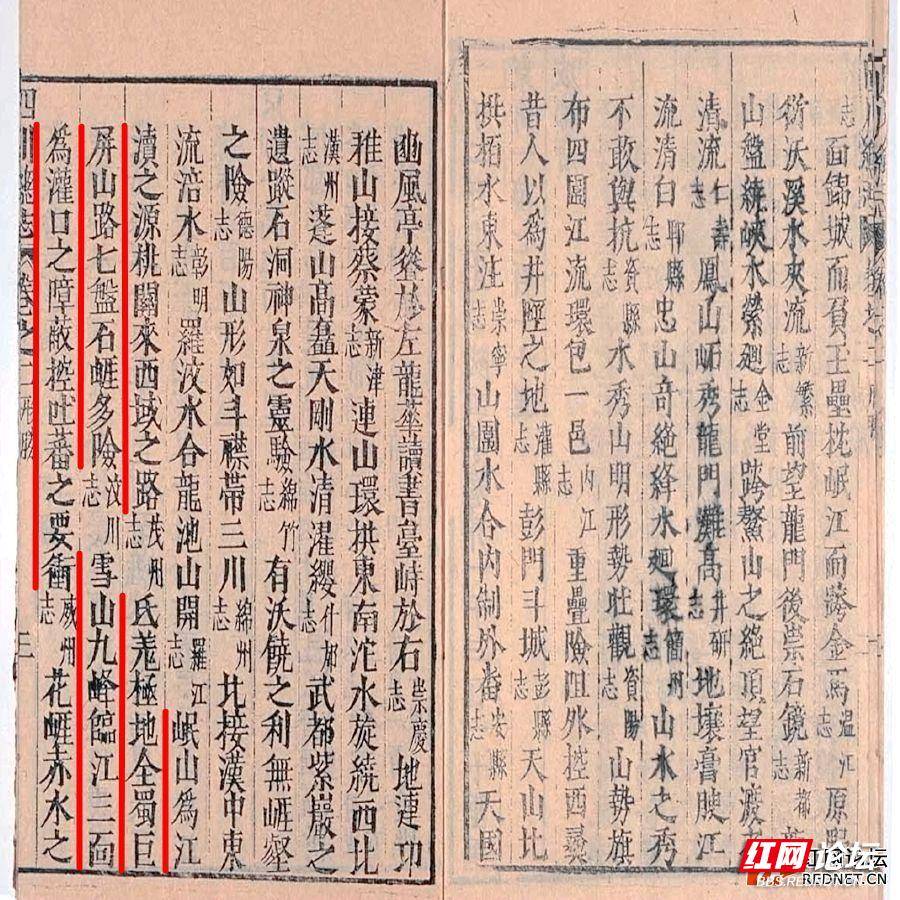 志面錦城而負玉壘枕岷江而跨金馬温江志原野
衍沃溪水夾流新繁志前望龍門後祟石鏡新都志
山盤繞峽水縈廻金堂志跨鰲山之絶頂望官渡之
清流仁壽志鳳山岫秀龍門灘高井研志地壤膏腴江
流清白郫縣志忠山奇絶絳水廻環簡州志山水之秀
不敢與抗資縣志水秀山明形勢壯觀資陽志山勢旗
布四圍江流環包一邑内江志重疊險阻外控西彝
昔人以爲井陘之地灌縣志彭門斗城彭縣志天山比
拱栢水東注崇寧志山圍水合内制外畨安縣志天國
幽風亭聳於左龍座讀書臺峙於右崇慶志地連邛
雅山接蔡蒙新津志連山環拱東南沱水旋繞西北
漢州志蓬山高矗天剛水清濯纓什邡志武都紫巖之
遺蹤石洞神泉之靈驗綿竹志有沃饒之利無崕壑
之險德陽志山形如斗襟帶三川綿州志北接漢中東
流涪水彰明志羅汶水合龍池山開羅江志岷山爲江
瀆之源桃關來西域之路茂州志氐羗極地全蜀巨
屏山路七盤石崕多險汶川志雪山九峰臨江三面
爲灌口之障蔽控吐蕃之要衝威州志花崕赤水之
四川總志 形勝 三
红网论坛
BBS.REDNET.CN